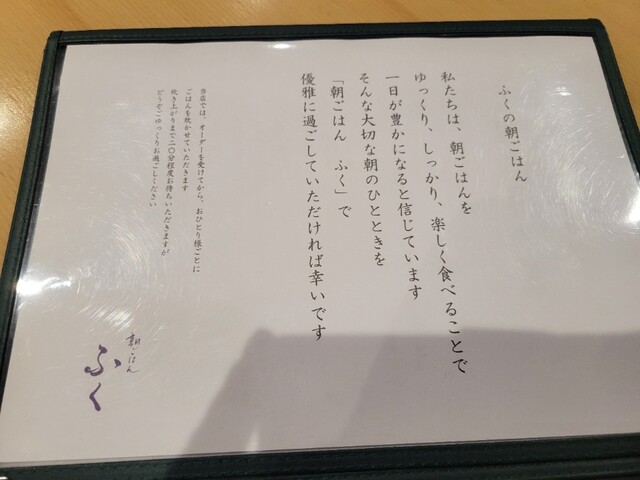 ふくの朝ごはん
私たちは、朝ごはんを
ゆっくり、しっかり、楽しく食べることで
一日が豊かになると信じています
そんな大切な朝のひとときを
「朝ごはん　ふく」で
優雅に過ごしていただければ幸いです
当店では、オーダーを受けてから、おひとり様ごとに
ごはんを炊かせていただきます
吹き上がりまで二〇分程度お待ちいただきますが
どうぞごゆっくりお過ごしください
朝ごはん
ふく